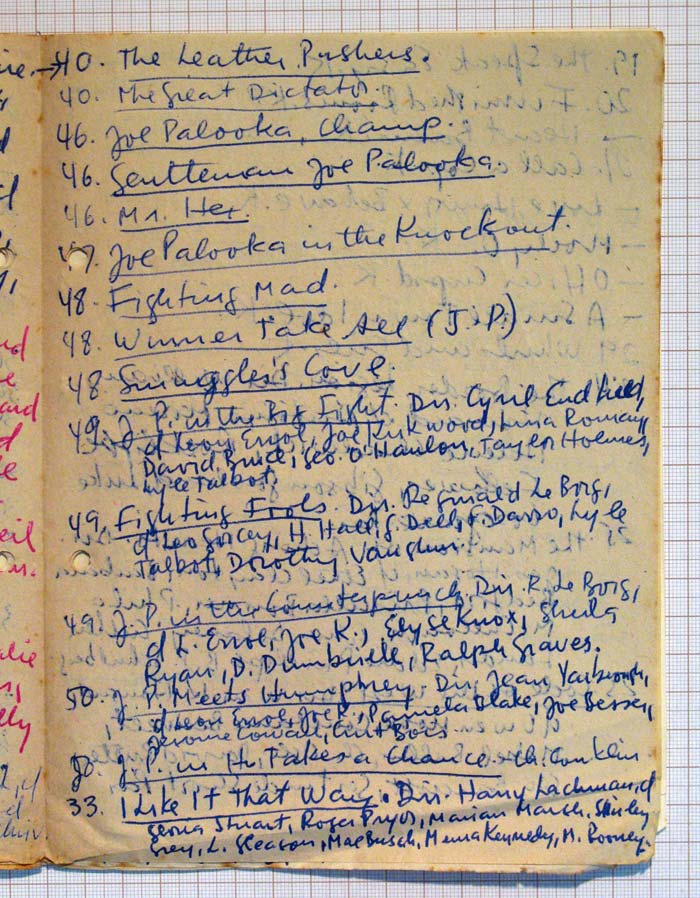 → 40. The Leather Pushers.
40. The Great Dictator.
46. Joe Palooka, Champ.
46. Gentleman Joe Palooka.
46. Mr. Hex.
47. Joe Palooka in the Knockout.
48. Fighting Mad.
48. Winner Take All (J.P.)
48 Smuggler's Cove.
49. J. P. in the Big Fight. Dir. Cyril Endfield,
d Leon Errol, Joe Kirkwood, Lina Romay,
David Bruce, Geo. O'Hanlon, Taylor Holmes,
Lyle Talbot.
49. Fighting Fools. Dir. Reginald Le Borg,
d Leo Gorcey, H. Hall, G. Dell, F. Darro, Lyle
Talbot, Dorothy Vaughn.
49. J. P. in the Counterpunch. Dir. R. Le Borg,
d L. Errol, Joe K., Elyse Knox, Sheila
Ryan, D. Dumbrille, Ralph Graves.
50. J. P. Meets Humphrey. Dir. Jean Yarbrough,
d Leon Errol, Joe K., Pamela Blake, Joe Besser,
Jerome Cowan,
50. J. P. in H. Takes a Chance. Ch. Conklin
33. I Like It That Way. Dir. Harry Lachman, d
Gloria Stuart, Roger Pryor, Marian Marsh. Shirley
Grey, L. Gleason, Mae Busch, Merna Kennedy, M. Rooney.